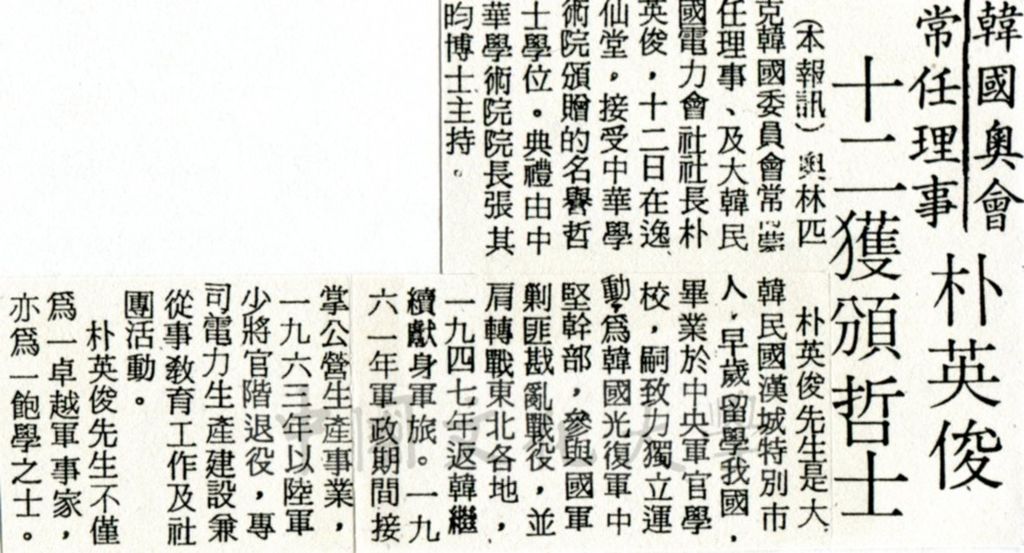 韓國奧會
常任理事
朴英俊
十二獲頒哲士
（本報訊）奧林匹
克韓國委員會常務
任理事、及大韓民
國電力會社社長朴
英俊，十二日在逸
仙堂，接受中華學
術院頒贈的名譽哲
士學位。典禮由中
華學術院院長張其
昀博士主持。
朴英俊先生是大
韓民國漢城特別市
人，早歲留學我國，
畢業於中央軍官學
校，嗣致力獨立運
動，為韓國光復軍中
堅幹部，參與國軍
剿匪戡亂戰役，並
肩轉戰東北各地，
一九四七年返韓繼
續獻身軍旅。一九
六一年軍政期間接
掌公營生產事業，
一九六三年以陸軍
少將官階退役，專
司電力生產建設兼
從事教育工作及社
團活動。
朴英俊先生不僅
為一卓越軍事家，
亦為一飽學之士。
中國文化大學